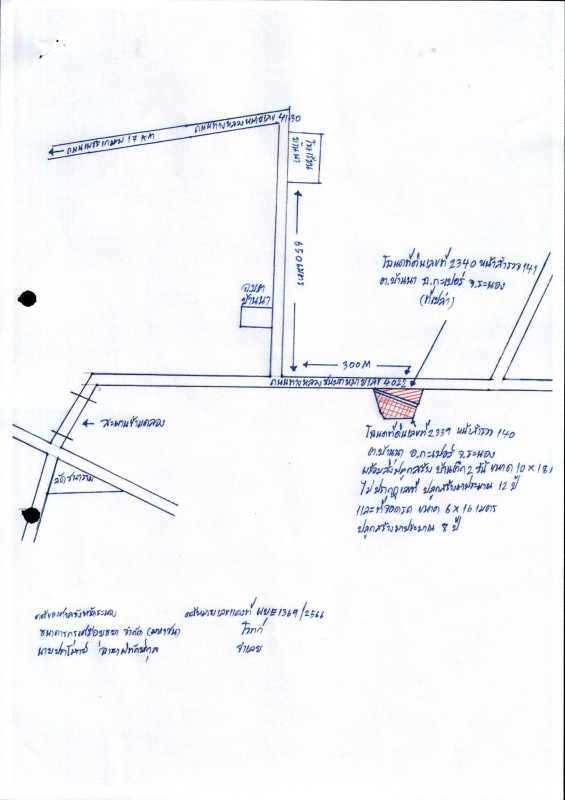 ถนนทางหลวงหมายเลข 4130
ถนนเพชรเกษม 17 KM
โรงเรียน
บ้านนา
650 เมตร
อบต
บ้านนา
โฉนดที่ดินเลขที่ 2340 หน้าสำรวจ 141
ต.บ้านนา อ.กะเปอร์ จ.ระนอง
(ที่เปล่า)
300M
ถนนทางหลวงชนบทหมายเลข 4022
สะพานข้ามคลอง
โฉนดที่ดินเลขที่ 2339 หน้าสำรวจ 140
ต.บ้านนา อ.กะเปอร์ จ.ระนอง
พร้อมสิ่งปลูกสร้าง บ้านตึก 2 ชั้น ขนาด 10 × 18
ไม่ปรากฏเลขที่ ปลูกสร้างมาประมาณ 12 ปี
และที่จอดรถ ขนาด 6 × 16 เมตร
ปลูกสร้างมาประมาณ 8 ปี
ศาลจังหวัดระนอง คดีหมายเลขแดงที่ ผบE1369/2566
ธนาคารกรุงศรีอยุธยา จำกัด (มหาชน) โจทก์
นาย จำเลย